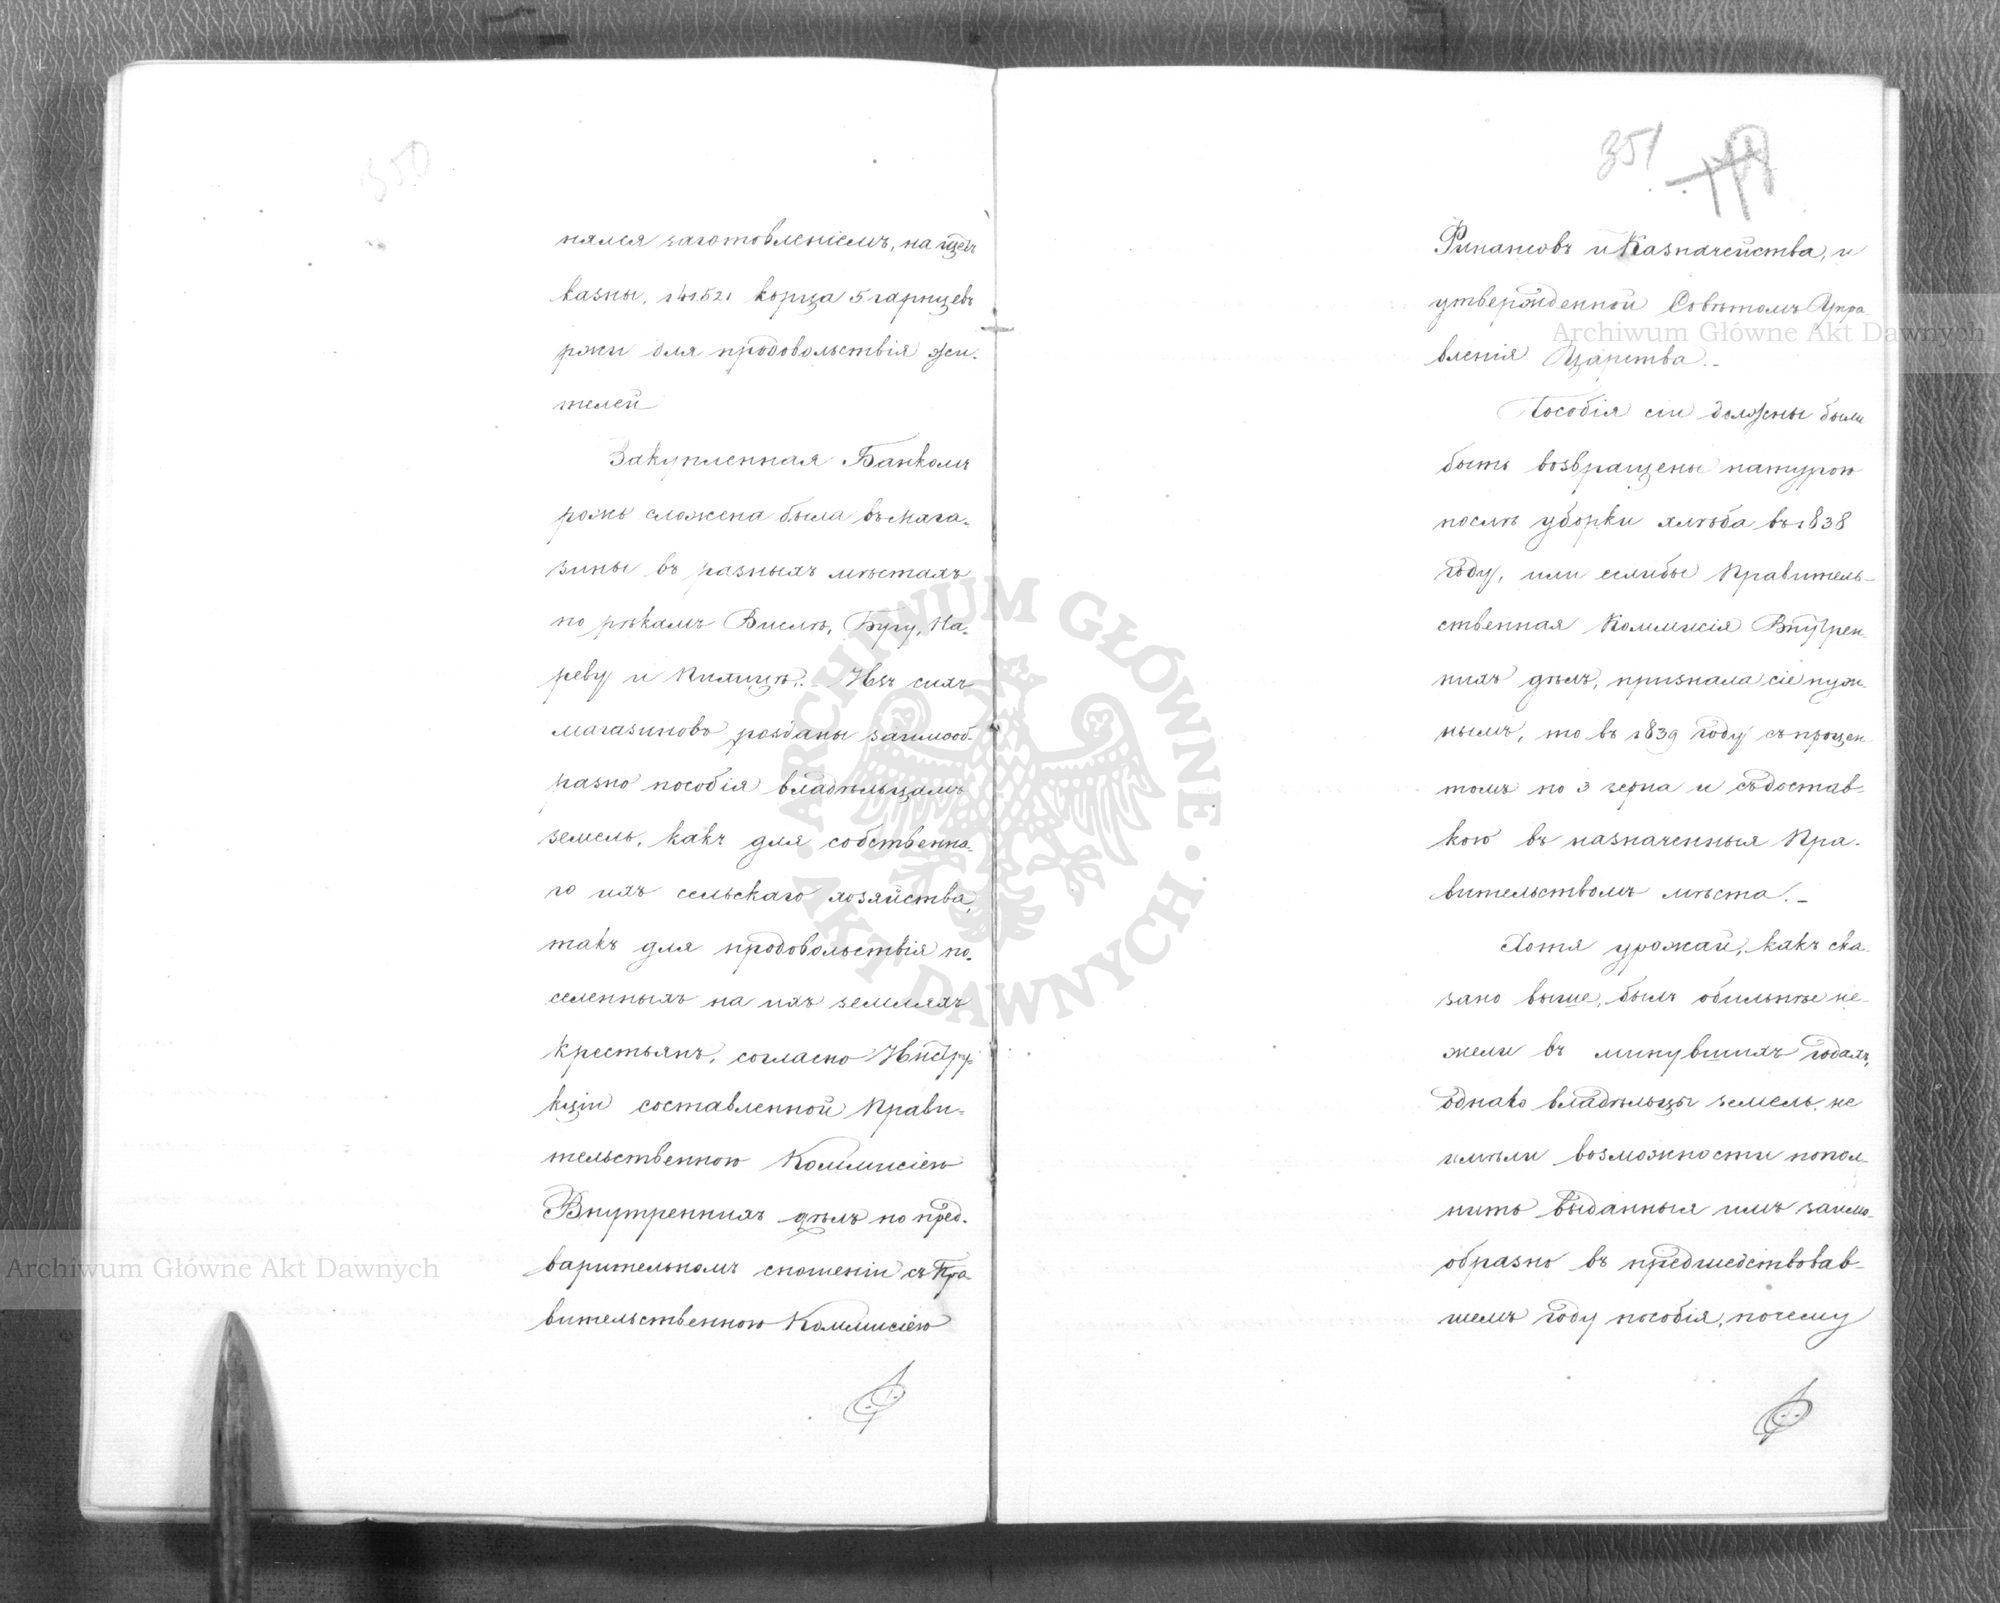 350
нялся заготовленіемъ, на щетъ
казны, 141.521 корца 5 гарнцевъ
ржи для продовольствія жи-
телей
Закупленная Банкомъ
рожь сложена была въ мага-
зины въ разныхъ мѣстахъ
по рѣкамъ Вислѣ, Бугу, На-
реву и Пилицѣ. Изъ сихъ
магазиновъ розданы заимооб-
разно пособія владѣльцамъ
земель, какъ для собственна-
го ихъ сельскаго хозяйства,
такъ для продовольствія по-
селенныхъ на ихъ земляхъ
крестьянъ, согласно Инстру-
кціи составленной Прави-
тельственною Коммисіею
Внутреннихъ дѣлъ по пред-
варительномъ сношеніи съ Пра-
вительственною Коммисіею
351
Финансовъ и Казначейства, и
утвержденной Совѣтомъ Упра-
вленія Царства.-
Пособія сіи должны были
быть возвращены натурою
послѣ уборки хлѣба въ 1838
году, или еслибы Правитель-
ственная Коммисія Внутрен-
нихъ дѣлъ, признала сіе нуж-
нымъ, то въ 1839 году съ процен-
томъ по 3 зерна и съ достав-
кою въ назначенныя Пра-
вительствомъ мѣста.-
Хотя урожай, какъ ска-
зано выше, былъ обильнѣе не-
жели въ минувшихъ годахъ,
однако владѣльцы земель, не
имѣли возможности попол-
нить выданныя имъ заимо-
образно въ предшедствовав-
шемъ году пособія, почему
Archiwum Główne Akt Dawnych
Archiwum Główne Akt Dawnych
ARCHIWUM GŁÓWNE · AKT DAWNYCH ·